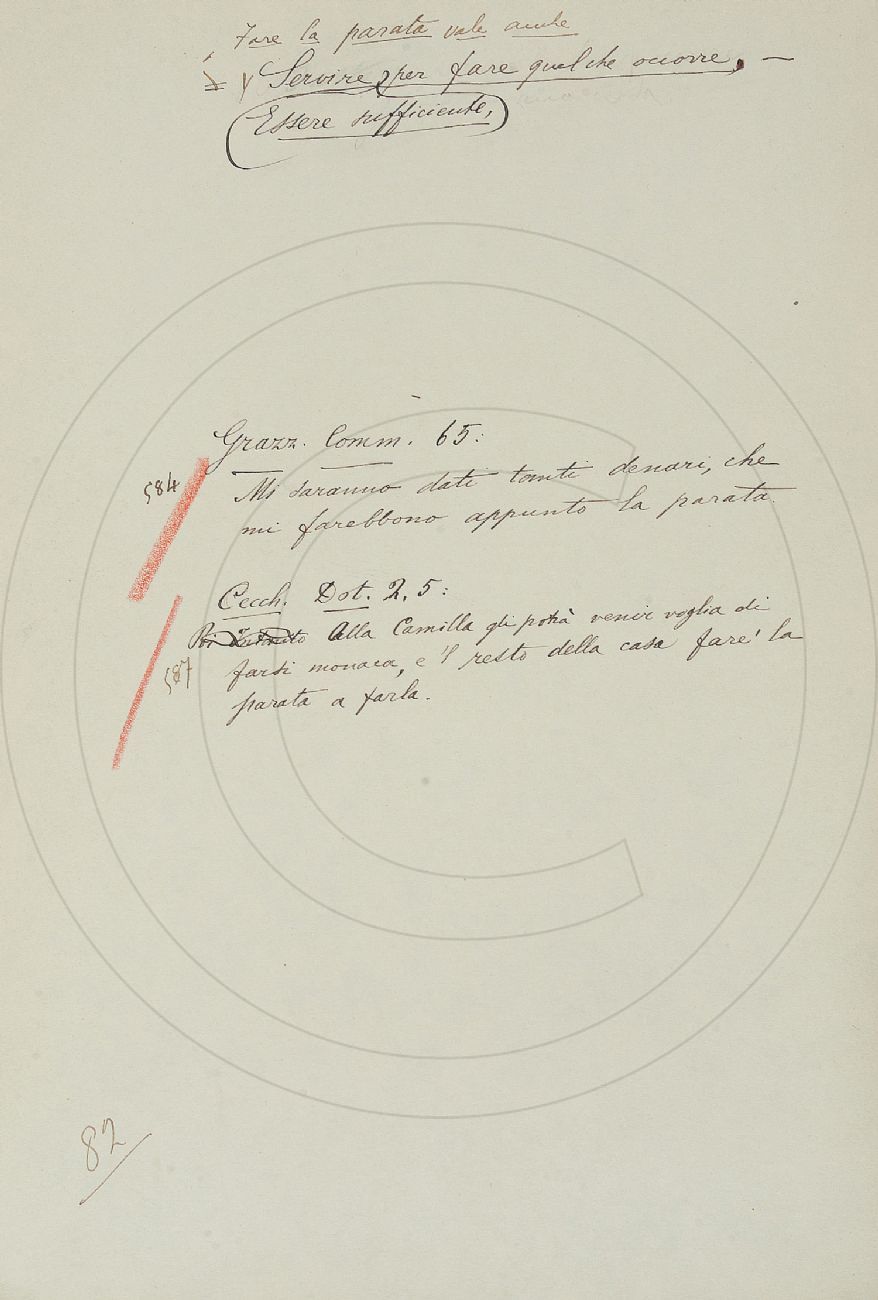 Fare la parata vale anche
Servire, per fare quel che ocorre, —
Essere sufficiente,
Grazz. Comm. 65:
584
Mi saranno dati tanti denari, che
mi farebbono appunto la parata.
Cecch. Dot. 2, 5:
Alla Camilla gli potrà venir voglia di
587
farsi monaca, e 'l resto della casa fare' la
parata a farla.
82